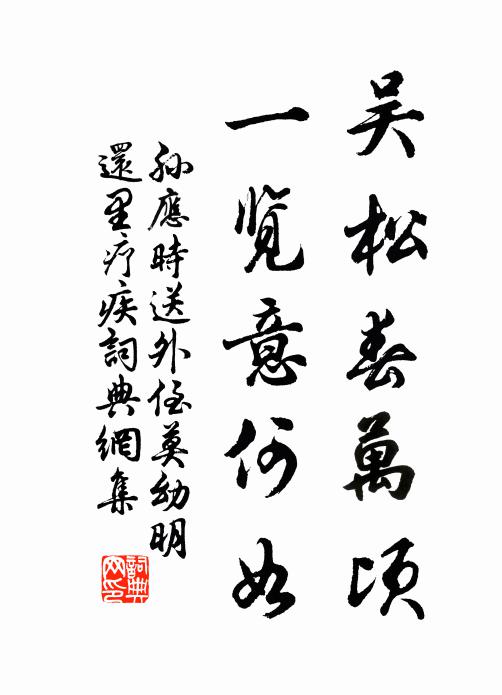 吴松春萬頃
一览意何如
孙應時送外侄莫幼明
還里疗疾詞典網集
詞典
网印